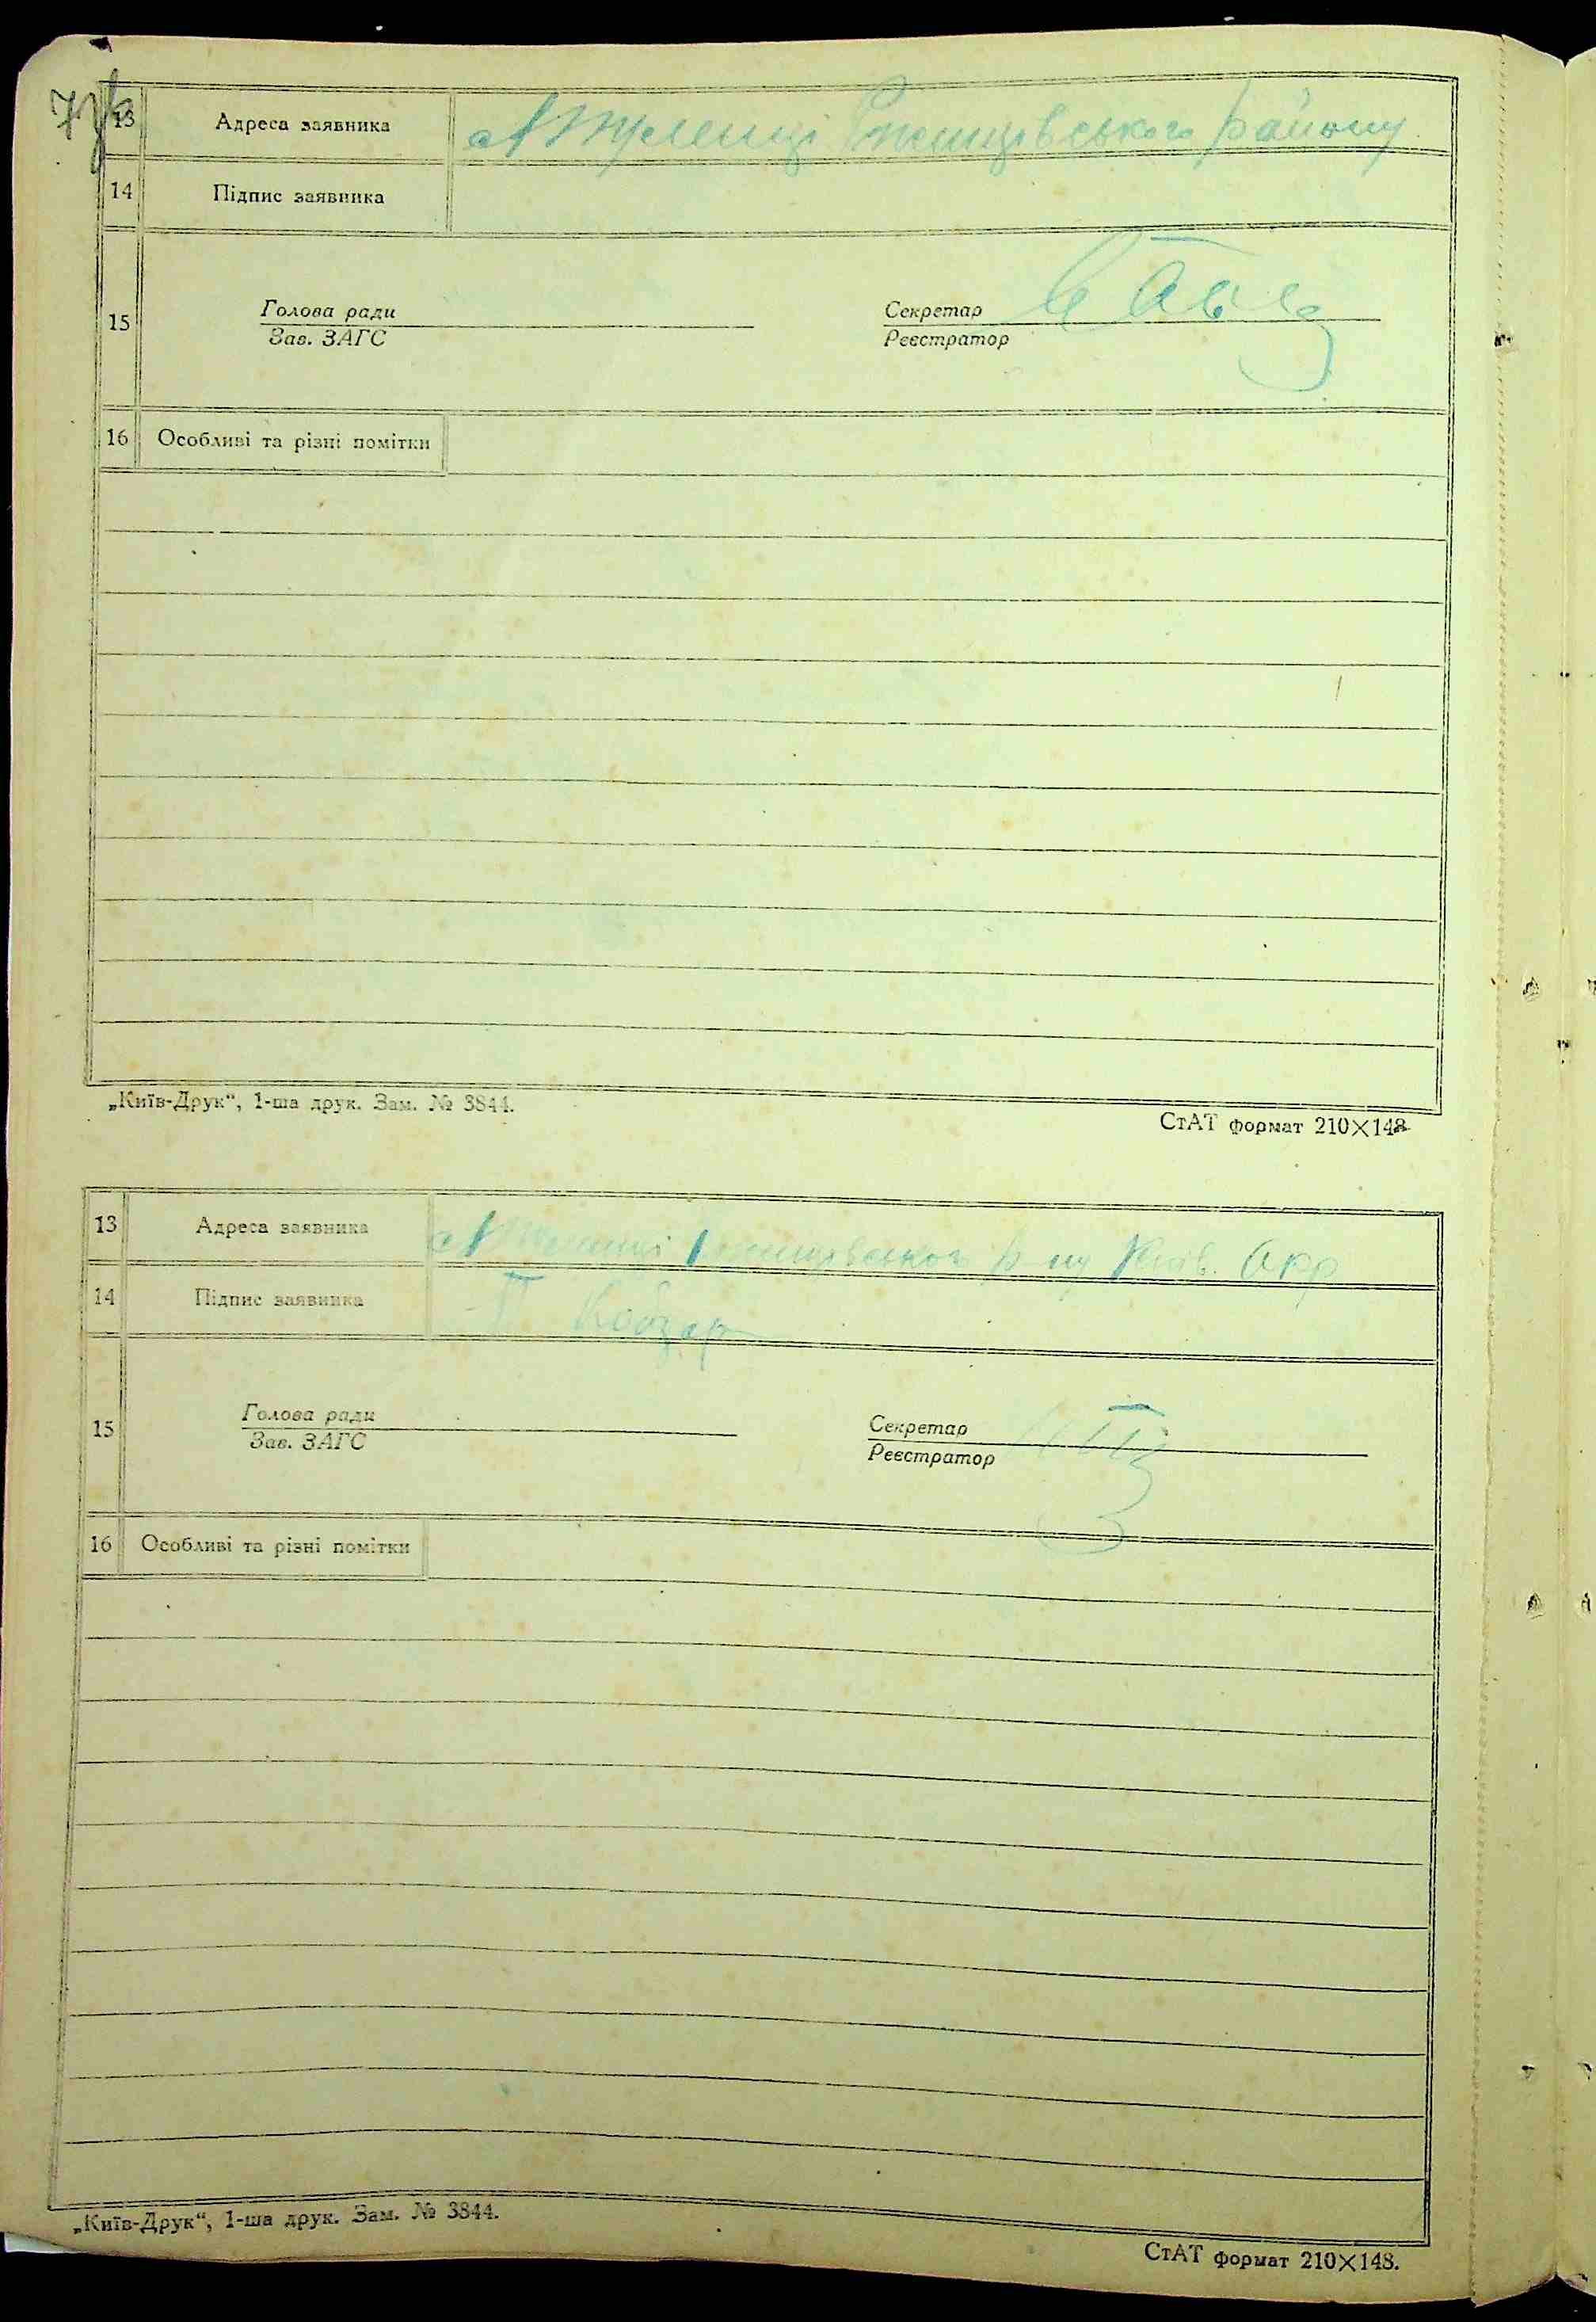 13 Адреса заявника району
14 Підпис заявника
15 Голова ради Секретар
Зав. ЗАГС Реєстратор
16 Особливі та різні помітки
„Київ-Друк“, 1-ша друк. Зам. № 3844.
СтАТ формат 210×148
13 Адреса заявника р-ну Київ. Окр
14 Підпис заявника Кобзар
15 Голова ради Секретар
Зав. ЗАГС Реєстратор
16 Особливі та різні помітки
„Київ-Друк“, 1-ша друк. Зам. № 3844.
СтАТ формат 210×148.